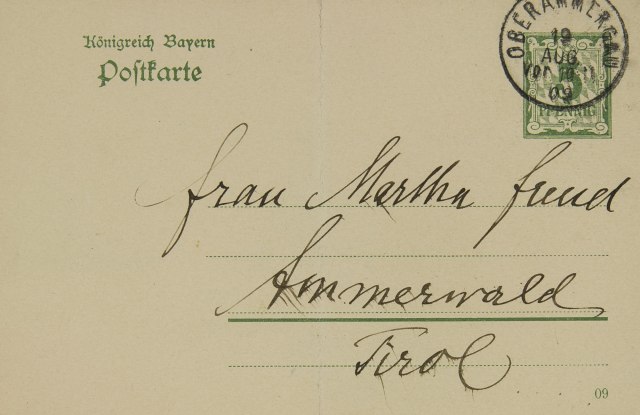 Königreich Bayern
Postkarte
OBERAMMERGAU
19
AUG.
09
5
PFENNIG
Frau Martha
Ammerwald
Tirol
09